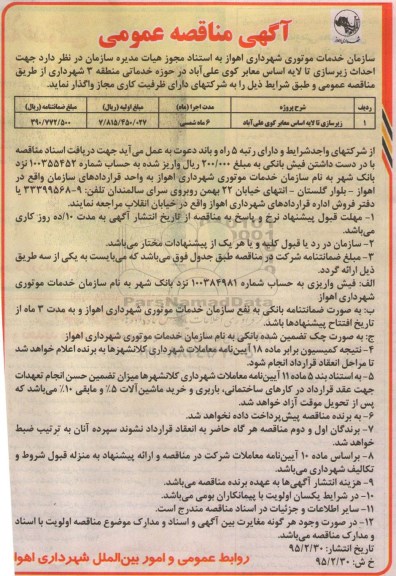 آگهی مناقصه عمومی
سازمان خدمات موتوری شهرداری اهواز به استناد مجوز هیات مدیره سازمان در نظر دارد جهت
احداث زیرسازی تا لایه اساس معابر کوی علی‌آباد در حوزه خدماتی منطقه ۳ شهرداری از طریق
مناقصه عمومی و طبق شرایط ذیل را به شرکتهای دارای ظرفیت کاری مجاز واگذار نماید.
ردیف شرح پروژه مدت اجرا (ماه) مبلغ اولیه (ریال) مبلغ ضمانتنامه (ریال)
۱ زیرسازی تا لایه اساس معابر کوی علی‌آباد ۶ ماه شمسی ۷/۸۱۵/۴۵۰/۰۲۷ ۳۹۰/۷۷۲/۵۰۰
از شرکتهای واجدشرایط و دارای رتبه ۵ راه و باند دعوت به عمل می‌آید جهت دریافت اسناد مناقصه
با در دست داشتن فیش بانکی به مبلغ ۲۰۰/۰۰۰ ریال واریز شده به حساب شماره ۱۰۰۳۵۵۴۵۲ نزد
بانک شهر به نام سازمان خدمات موتوری شهرداری اهواز به واحد قراردادهای سازمان واقع در
اهواز - بلوار گلستان - انتهای خیابان ۲۲ بهمن روبروی سرای سالمندان تلفن: ۹-۳۳۳۹۹۵۶۸ یا
دفتر فروش اداره قراردادهای شهرداری اهواز واقع در خیابان انقلاب مراجعه نمایند.
۱- مهلت قبول پیشنهاد نرخ و پاسخ به مناقصه از تاریخ انتشار آگهی به مدت ۱۰/ده روز کاری
می‌باشد.
۲- سازمان در رد یا قبول کلیه و یا هر یک از پیشنهادات مختار می‌باشد.
۳- مبلغ ضمانتنامه شرکت در مناقصه طبق جدول فوق می‌باشد که می‌بایست به یکی از سه طریق
ذیل ارائه گردد.
الف: فیش واریزی به حساب شماره ۱۰۰۳۸۴۹۸۱ نزد بانک شهر به نام سازمان خدمات موتوری
شهرداری اهواز
ب: به صورت ضمانتنامه بانکی به نفع سازمان خدمات موتوری شهرداری اهواز و به مدت ۳ ماه از
تاریخ افتتاح پیشنهادها باشد.
ج: به صورت چک تضمین شده بانکی به نام سازمان خدمات موتوری شهرداری اهواز
۴- نتیجه کمیسیون برابر ماده ۱۸ آیین‌نامه معاملات شهرداری کلانشهرها به برنده اعلام خواهد شد
تا مراحل انعقاد قرارداد انجام شود.
۵- به استناد بند ۵ ماده ۱۱ آیین‌نامه معاملات شهرداری کلانشهرها میزان تضمین حسن انجام تعهدات
جهت عقد قرارداد در کارهای ساختمانی، باربری و خرید ماشین‌آلات ۵٪ و مابقی ۱۰٪ می‌باشد که
پس از تحویل موقت آزاد خواهد شد.
۶- به برنده مناقصه پیش‌پرداخت داده نخواهد شد.
۷- برندگان اول و دوم مناقصه هر گاه حاضر به انعقاد قرارداد نشوند سپرده آنان به ترتیب ضبط
خواهد شد.
۸- براساس ماده ۱۰ آیین‌نامه معاملات شرکت در مناقصه و ارائه پیشنهاد به منزله قبول شروط و
تکالیف شهرداری می‌باشد.
۹- هزینه انتشار آگهی‌ها به عهده برنده مناقصه می‌باشد.
۱۰- در شرایط یکسان اولویت با پیمانکاران بومی می‌باشد.
۱۱- سایر اطلاعات و جزئیات در اسناد مناقصه مندرج است.
۱۲- در صورت وجود هر گونه مغایرت بین آگهی و اسناد و مدارک موضوع مناقصه اولویت با اسناد
و مدارک مناقصه می‌باشد.
تاریخ انتشار: ۹۵/۲/۳۰
خ ش: ۹۵/۲/۳۰
روابط عمومی و امور بین‌الملل شهرداری اهواز
ParsNamadData